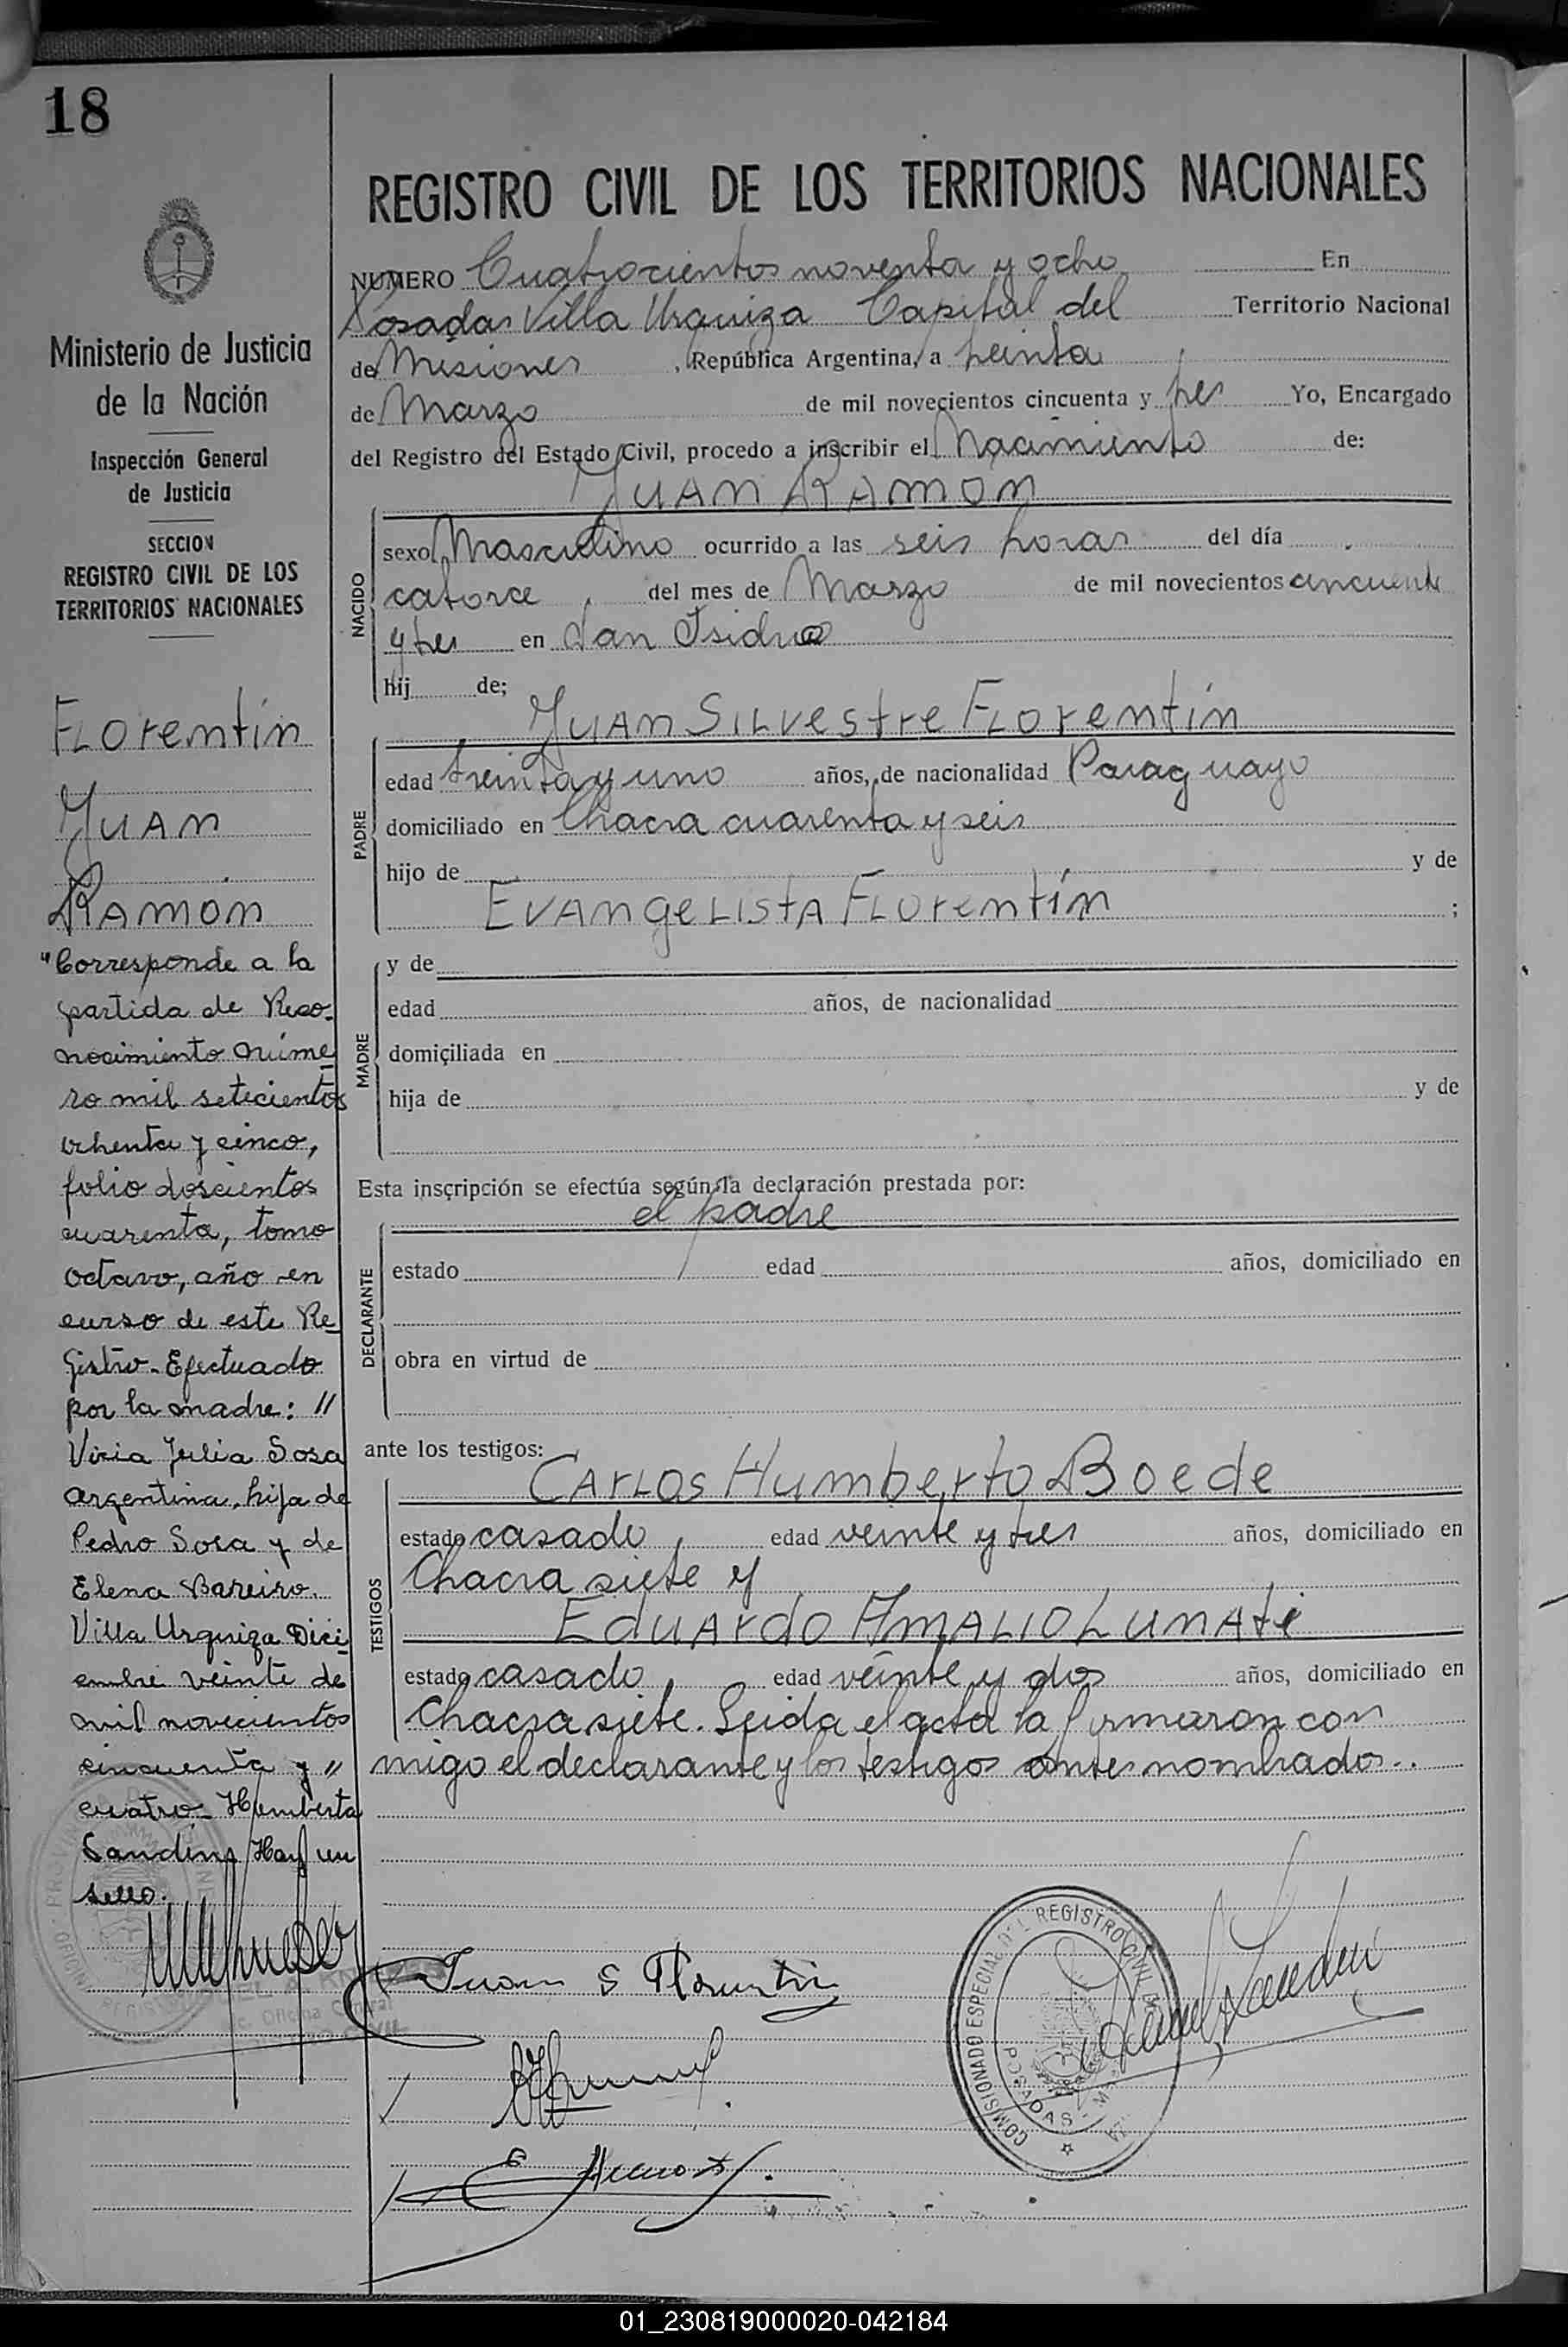 18
REGISTRO CIVIL DE LOS TERRITORIOS NACIONALES
Ministerio de Justicia
de la Nación
Inspección General
de Justicia
SECCION
REGISTRO CIVIL DE LOS
TERRITORIOS NACIONALES
Florentín
Juan
Ramón
"Corresponde a la
partida de Reco-
nocimiento núme
ro mil setecientos
ochenta y cinco,
folio doscientos
cuarenta, tomo
octavo, año en
curso de este Re
gistro-Efectuado
por la madre: "
Julia Sosa
argentina, hija de
Pedro Sosa y de
Elena Bareiro.
Villa Urquiza Dici
embre veinte de
mil novecientos
cincuenta y "
cuatro- Humberta
Sandins Hay un
sello.
NUMERO Cuatrocientos noventa y ocho En
Posadas Villa Urquiza Capital del Territorio Nacional
de Misiones , República Argentina, a treinta
de Marzo de mil novecientos cincuenta y tres Yo, Encargado
del Registro del Estado Civil, procedo a inscribir el Nacimiento de:
Juan Ramon
NACIDO
sexo Masculino ocurrido a las seis horas del día
catorce del mes de Marzo de mil novecientos cincuenta
y tres en San Isidro
hij de;
Juan Silvestre Florentín
PADRE
edad treinta y uno años, de nacionalidad Paraguayo
domiciliado en Chacra cuarenta y seis
hijo de y de
Evangelista Florentín ;
MADRE
y de
edad años, de nacionalidad
domiciliada en
hija de y de
Esta inscripción se efectúa según la declaración prestada por:
el padre
DECLARANTE
estado edad años, domiciliado en
obra en virtud de
ante los testigos:
Carlos Humberto Boede
TESTIGOS
estado casado edad veinte y tres años, domiciliado en
Chacra siete y
Eduardo Amalio Lunati
estado casado edad veinte y dos años, domiciliado en
Chacra siete. Leida el acta la firmaron con
migo el declarante y los testigos antes nombrados..
Juan S Florentin
COMISIONADO ESPECIAL DEL REGISTRO CIVIL
POSADAS
01_230819000020-042184